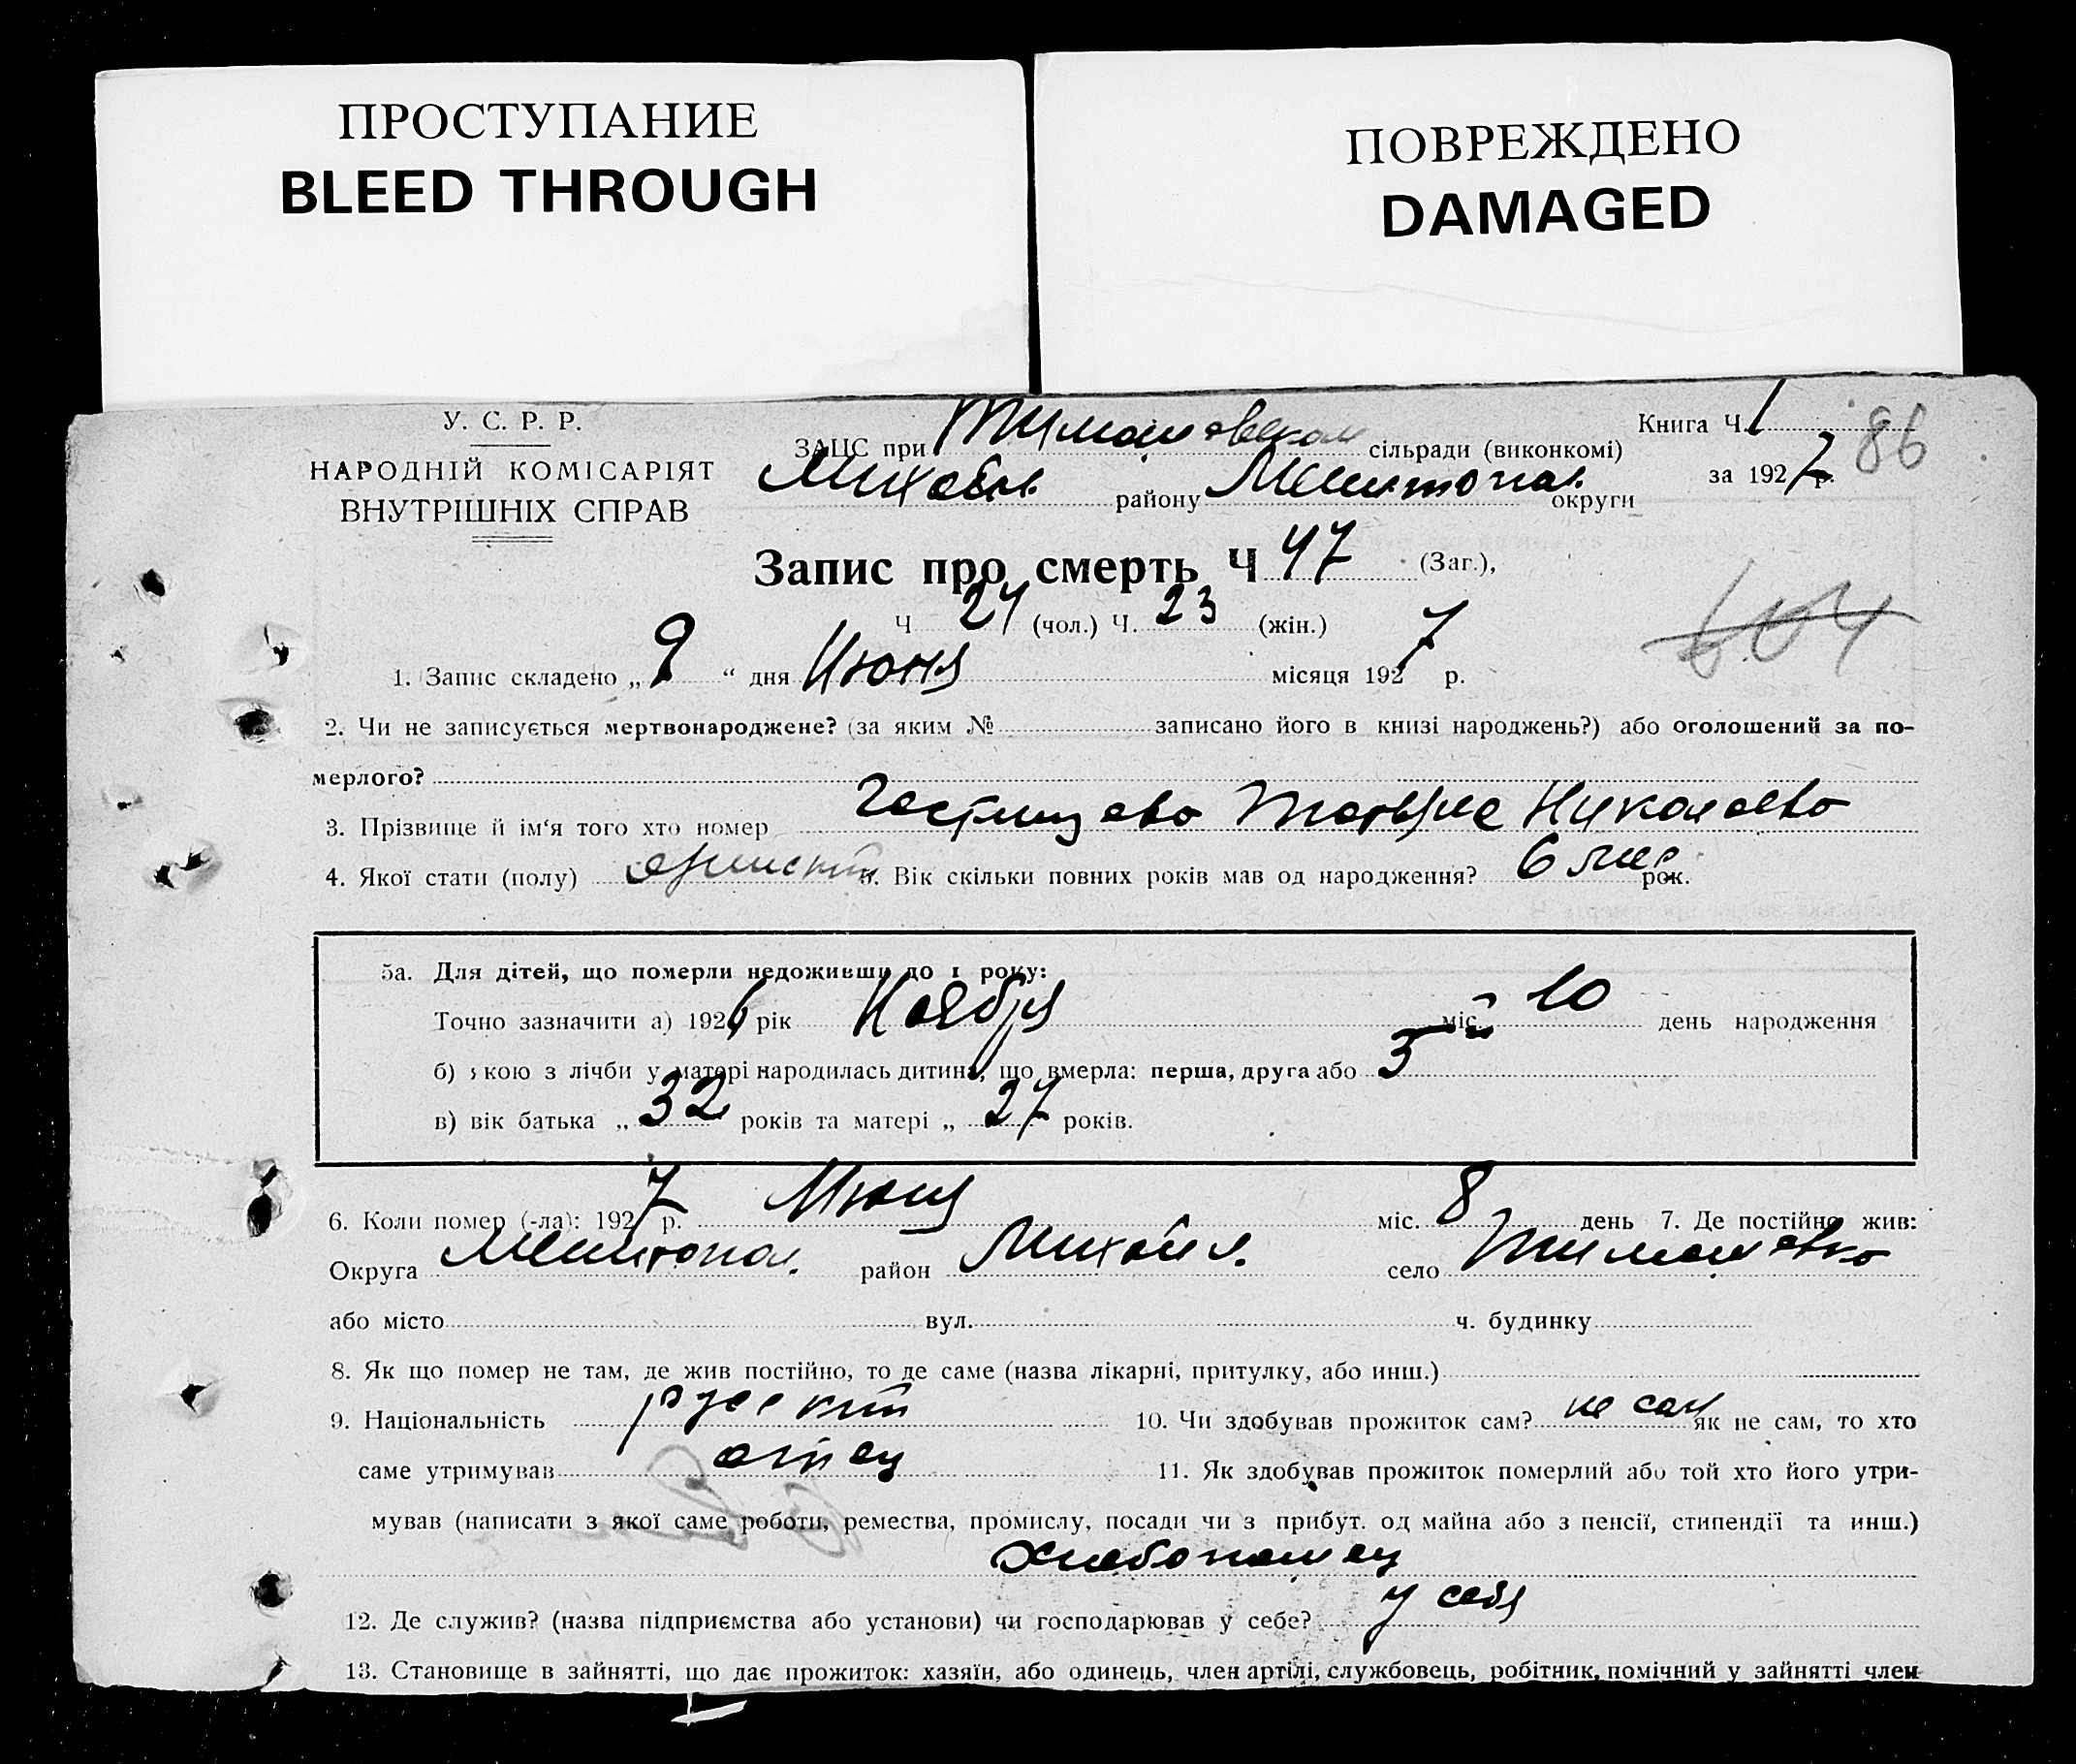 ПРОСТУПАНИЕ
BLEED THROUGH
ПОВРЕЖДЕНО
DAMAGED
У. С. Р. Р.
НАРОДНІЙ КОМІСАРІЯТ
ВНУТРІШНІХ СПРАВ
ЗАЦС при Тимошовском сільради (виконкомі)
Михайл. району Мелитопол. округи
Книга Ч. 1
за 1927 р.
86
Запис про смерть Ч 47 (Заг.),
Ч 24 (чол.) Ч. 23 (жін.)
604
1. Запис складено „ 9 “ дня Июня місяця 1927 р.
2. Чи не записується мертвонароджене? (за яким № записано його в книзі народжень?) або оголошений за по-
мерлого?
3. Прізвище й ім'я того хто помер Николаевна
4. Якої стати (полу) женский 5. Вік скільки повних років мав од народження? 6 мес рок.
5а. Для дітей, що померли недоживши до 1 року:
Точно зазначити а) 1926 рік Ноября міс. 10 день народження
б) якою з лічби у матері народилась дитина, що вмерла: перша, друга або
в) вік батька „ 32 років та матері „ 27 років.
6. Коли помер (-ла): 1927 р. Июня міс. 8 день 7. Де постійно жив:
Округа Мелитопол. район Михайл. село Тимошовка
або місто вул. ч. будинку
8. Як що помер не там, де жив постійно, то де саме (назва лікарні, притулку, або инш.)
9. Національність руский 10. Чи здобував прожиток сам? не сам як не сам, то хто
саме утримував отец 11. Як здобував прожиток померлий або той хто його утри-
мував (написати з якої саме роботи, ремества, промислу, посади чи з прибут. од майна або з пенсії, стипендії та инш.)
Хлебопашец
12. Де служив? (назва підприємства або установи) чи господарював у себе? у себя
13. Становище в зайнятті, що дає прожиток: хазяїн, або одинець, член артілі, службовець, робітник, помічний у зайнятті член